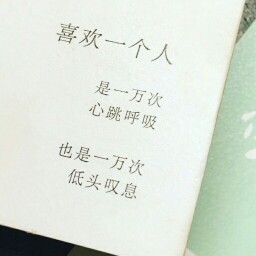 喜欢一个人
是一万次
心跳呼吸
也是一万次
低头叹息